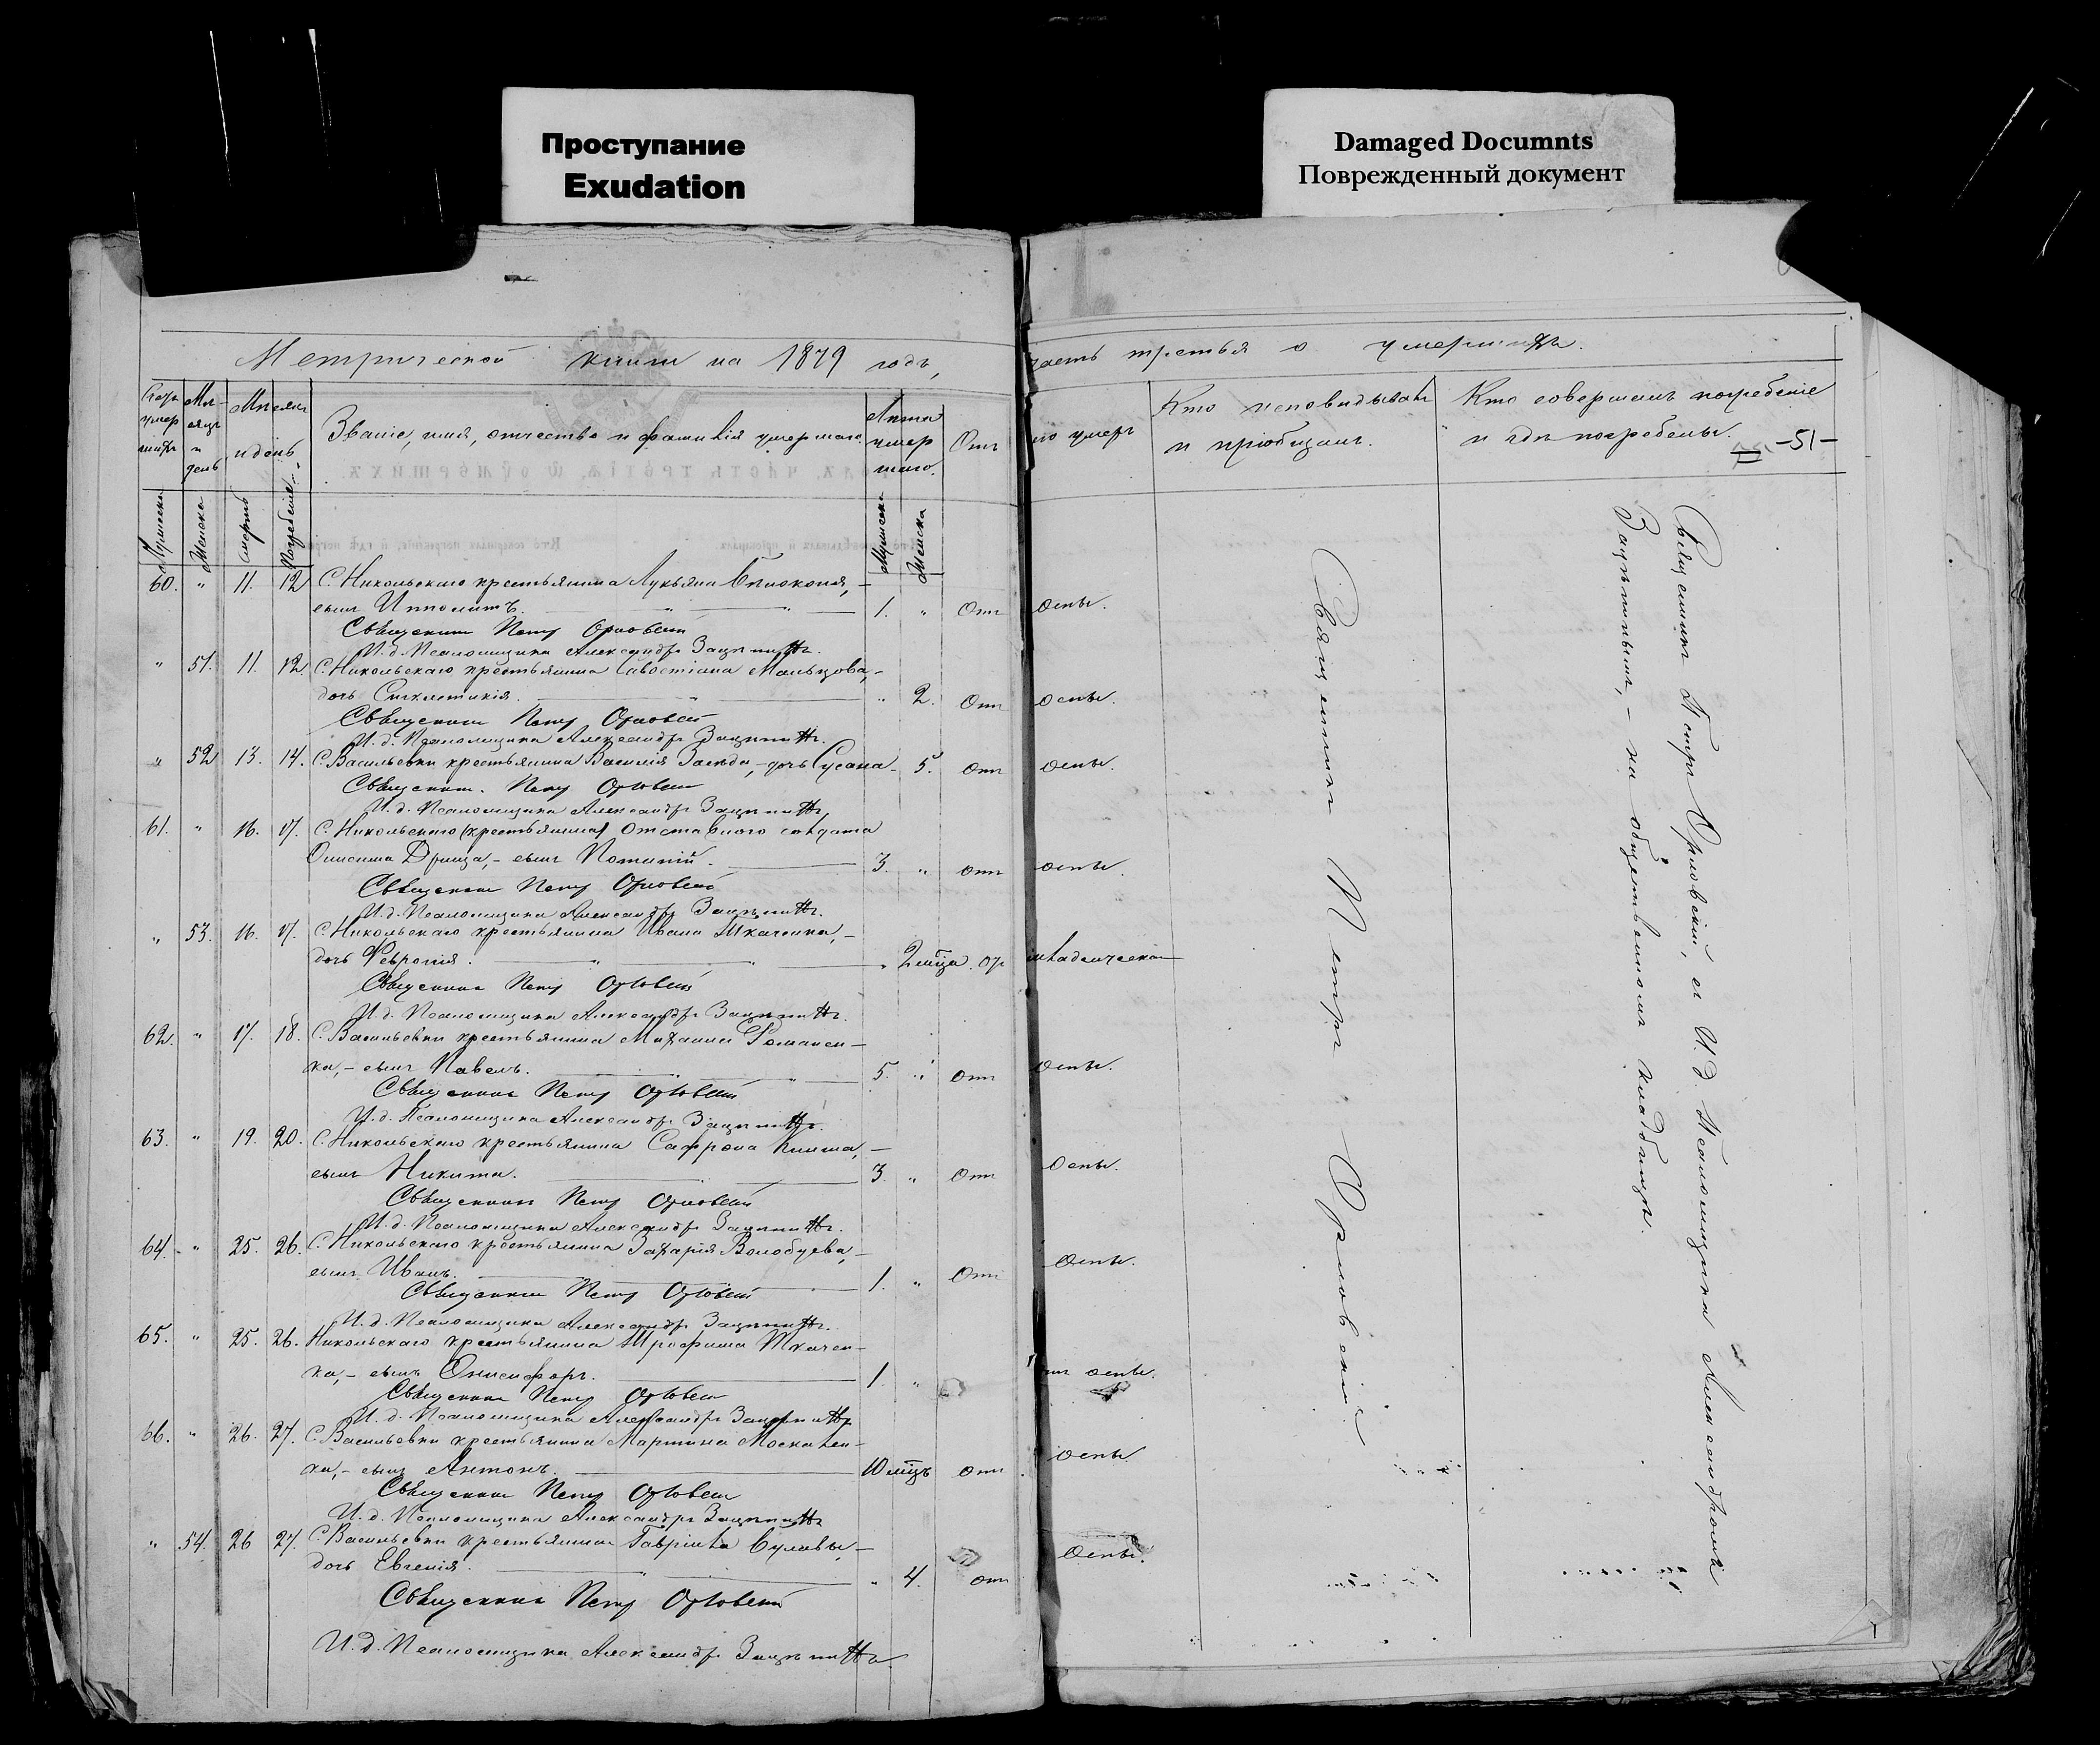 Проступание
Exudation
Damaged Documnts
Поврежденный документ
Метрической книги на 1879 годъ,
часть третья о умершихъ.
Звание, имя, отчество и фамилія умершаго.
Лѣта умершаго.
Отъ чего умеръ
Кто исповѣдывалъ и пріобщалъ.
Кто совершалъ погребеніе и гдѣ погребены.
-51-
Мужеска
Женска
смерть
Погребенія
Мужеска
Женска
60. " 11. 12 С. Никольскаго крестьянина Лукьяна
сынъ Ипполитъ. 1. " Отъ оспы.
Священникъ Петръ Орловскій
И. д. Псаломщика Александръ
" 51. 11. 12. С. Никольскаго крестьянина Савостіана Мальцова,-
дочь Синклитикія. " 2. Отъ оспы.
Священникъ Петръ Орловскій
И. д. Псаломщика Александръ
" 52 13. 14. С. Васильевки крестьянина Василія - дочь Сусана 5. отъ оспы.
Священник. Петръ Орловскій
И. д. Псаломщика Александръ
61. " 16. 17. С. Никольскаго (крестьянина) отставного солдата
Онисима - сынъ 3. " отъ оспы.
Священникъ Петръ Орловскій
И. д. Псаломщика Александръ
" 53. 16. 17. С. Никольскаго крестьянина Ивана Ткаченка,-
дочь Февронія. " 2 мѣся. младенческой
Священникъ Петръ Орловскій
И. д. Псаломщика Александръ
62. " 17. 18. С. Васильевки крестьянина Михаила Романен-
ка,- сынъ Павелъ. 5. " отъ оспы.
Священникъ Петръ Орловскій
И. д. Псаломщика Александръ
63. " 19. 20. С. Никольскаго крестьянина Сафрона
сынъ Никита. 3. " отъ оспы.
Священникъ Петръ Орловскій
И. д. Псаломщика Александръ
64. " 25. 26. С. Никольскаго крестьянина Захарія Волобуева,-
сынъ Иванъ. 1. " Отъ оспы.
Священникъ Петръ Орловскій
И. д. Псаломщика Александръ
65. " 25. 26. Никольскаго крестьянина Трофима Ткачен-
ка,- сынъ Онисифоръ. 1. " отъ оспы.
Священникъ Петръ Орловскій
И. д. Псаломщика Александръ
66. " 26. 27. С. Васильевки крестьянина Мартина Москален-
ка,- сынъ Антонъ. 10 мѣцъ отъ оспы
Священникъ Петръ Орловскій
И. д. Псаломщика Александръ
" 54. 26 27. С. Васильевки крестьянина Гавріила Булавы,-
дочь Евгенія. " 4. отъ оспы.
Священникъ Петръ Орловскій
И. д. Псаломщика Александръ
Священникъ Петръ Орловскій
Священникъ Петръ Орловскій, съ И. Д Псаломщика Александромъ
на общественномъ кладбищѣ.